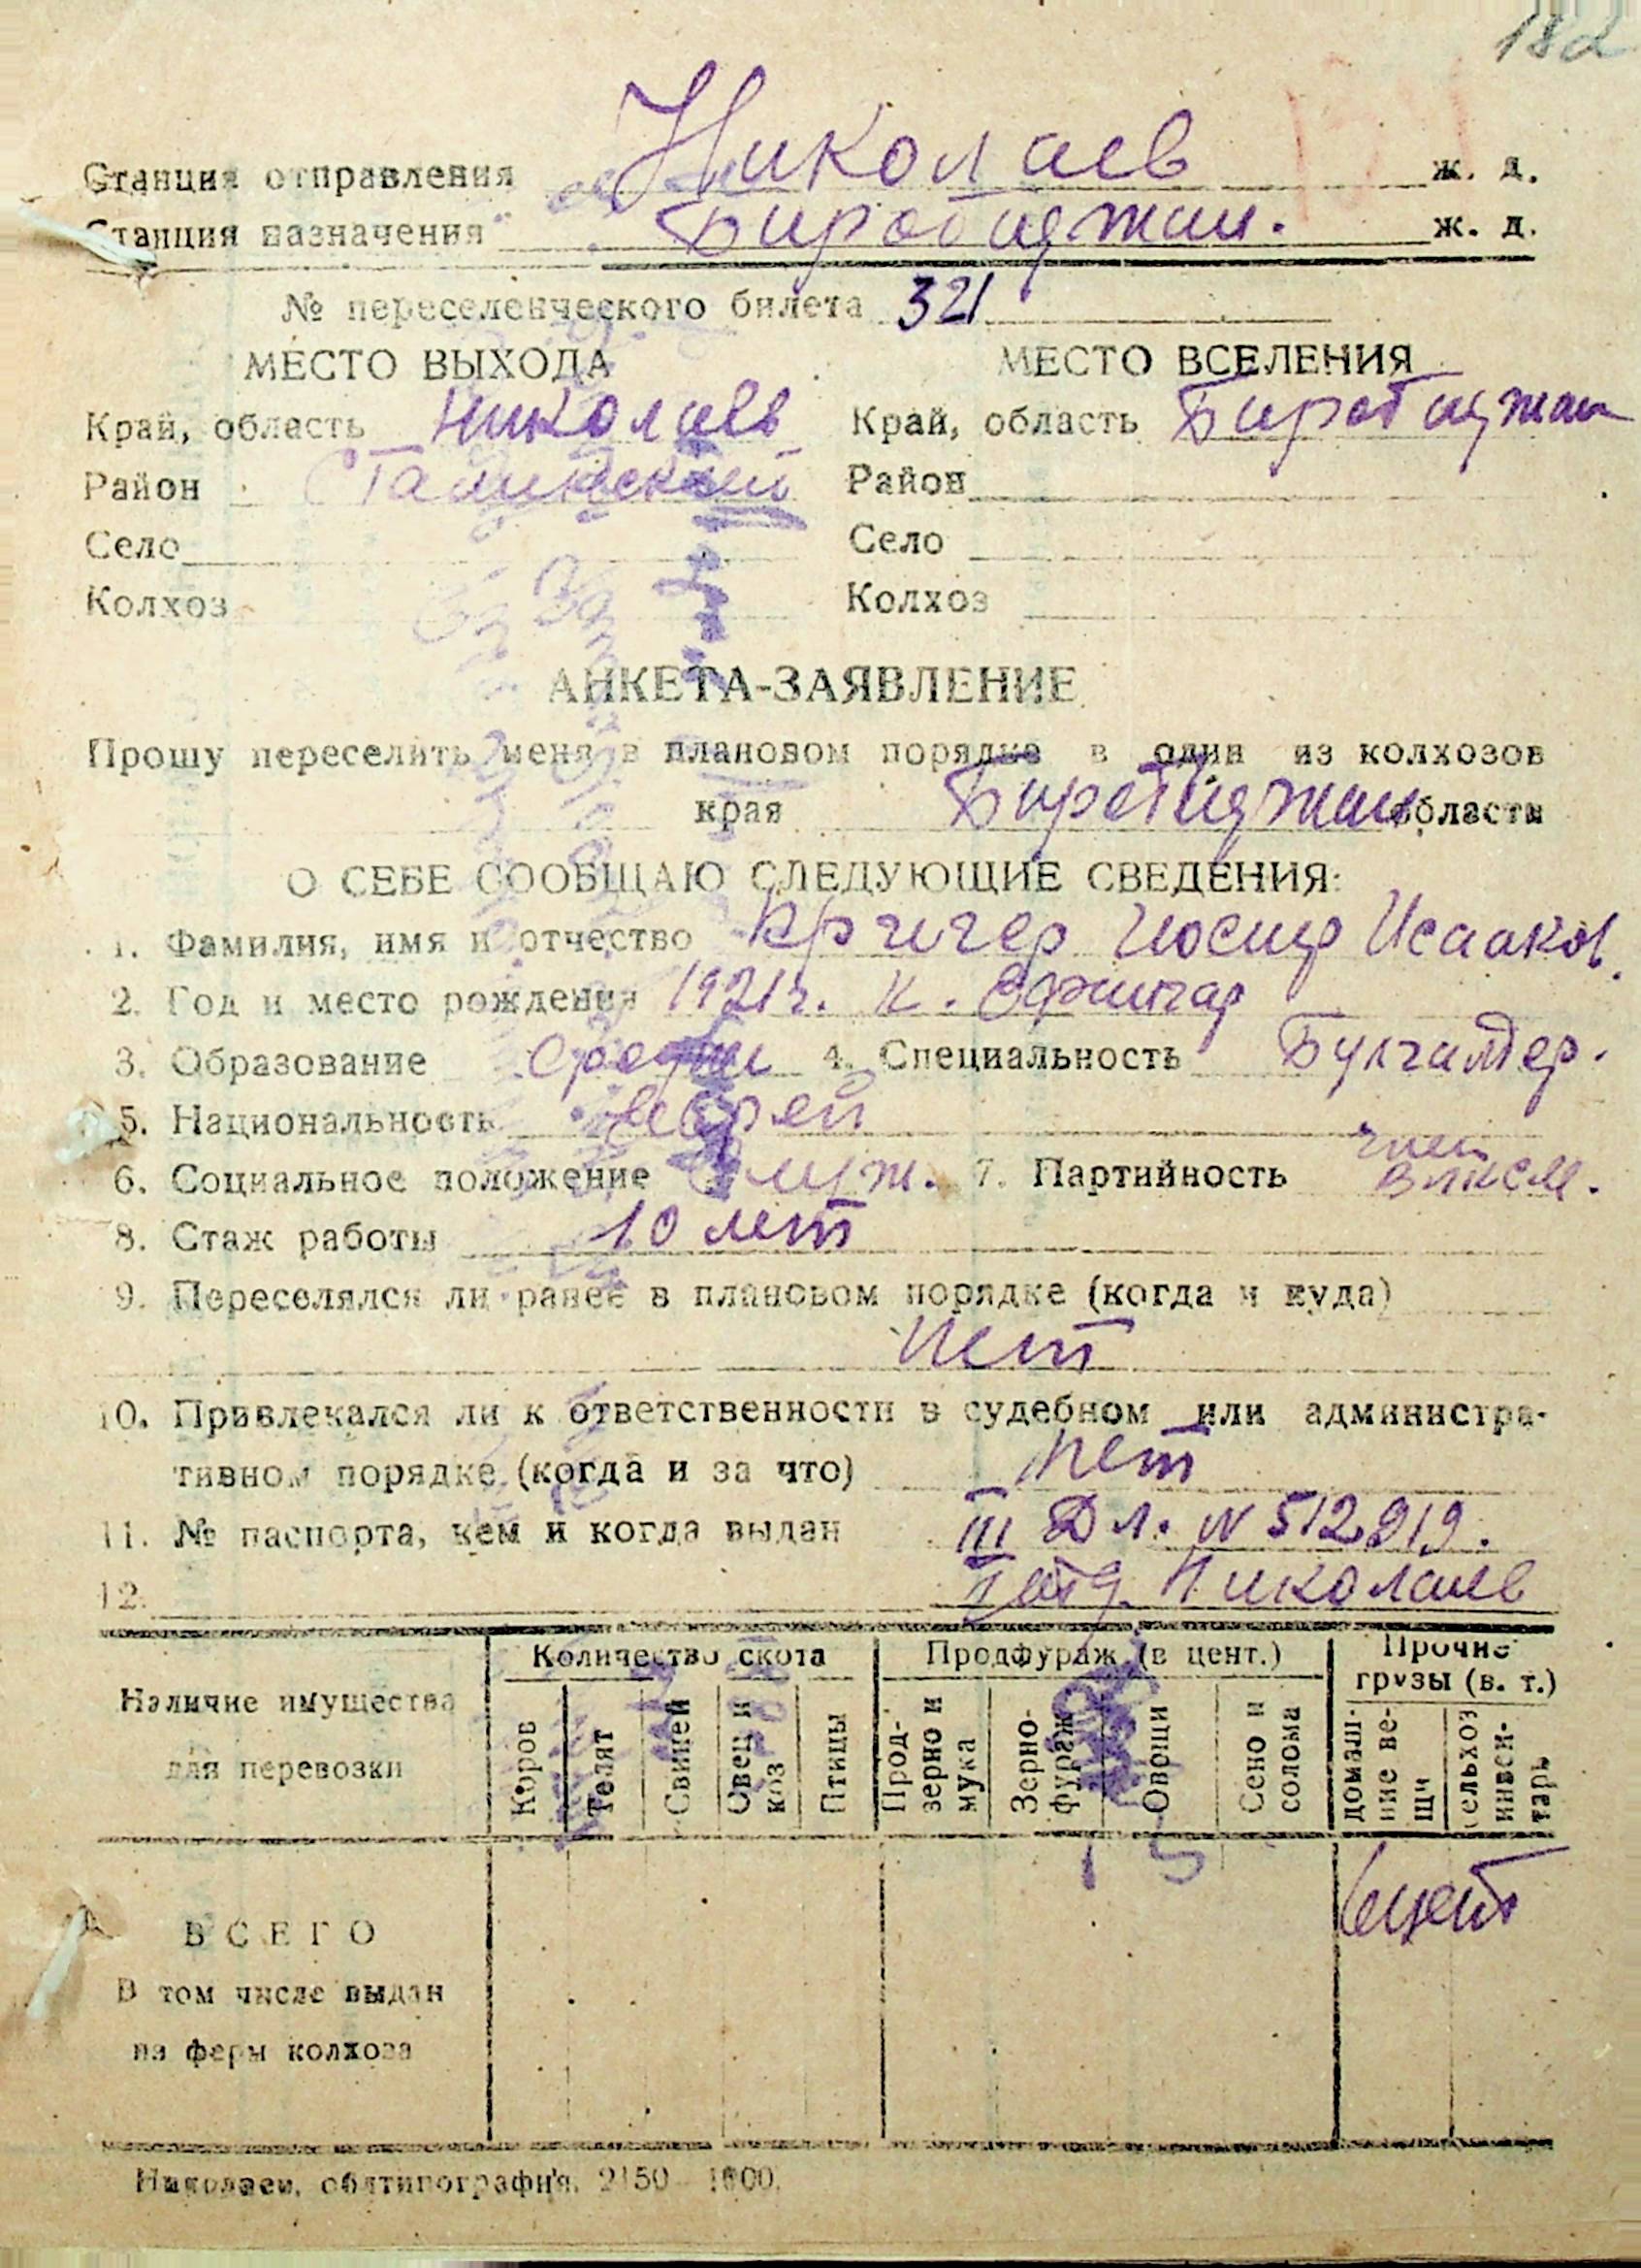 182
Станция отправления Николаев ж. д.
Станция назначения Биробиджан. ж. д.
№ переселенческого билета 321
МЕСТО ВЫХОДА МЕСТО ВСЕЛЕНИЯ
Край, область Николаев Край, область Биробиджан
Район Сталинский Район
Село Село
Колхоз Колхоз
АНКЕТА-ЗАЯВЛЕНИЕ
Прошу переселить меня в плановом порядке в один из колхозов
края Биробиджан области
О СЕБЕ СООБЩАЮ СЛЕДУЮЩИЕ СВЕДЕНИЯ:
1. Фамилия, имя и отчество Кригер Иосиф Исааков.
2. Год и место рождения 1921 г. к. Эфингар
3. Образование средн 4. Специальность Бухгалтер.
5. Национальность еврей
6. Социальное положение Служ. 7. Партийность член ВЛКСМ.
8. Стаж работы 10 лет
9. Переселялся ли ранее в плановом порядке (когда и куда)
нет
10. Привлекался ли к ответственности в судебном или администра-
тивном порядке (когда и за что) нет
11. № паспорта, кем и когда выдан III Дл. N 512919.
12. Николаев
Наличие имущества для перевозки Количество скота Продфураж (в цент.) Прочие грузы (в. т.)
Коров Телят Свиней Овец и коз Птицы Прод-зерно и мука Зерно-фураж Овощи Сено и солома домаш-ние ве-щи сельхоз инвен-тарь
1 5
ВСЕГО 6 цент
В том числе выдан
на фермы колхоза
Николаев, облтипография. 2150—1000.